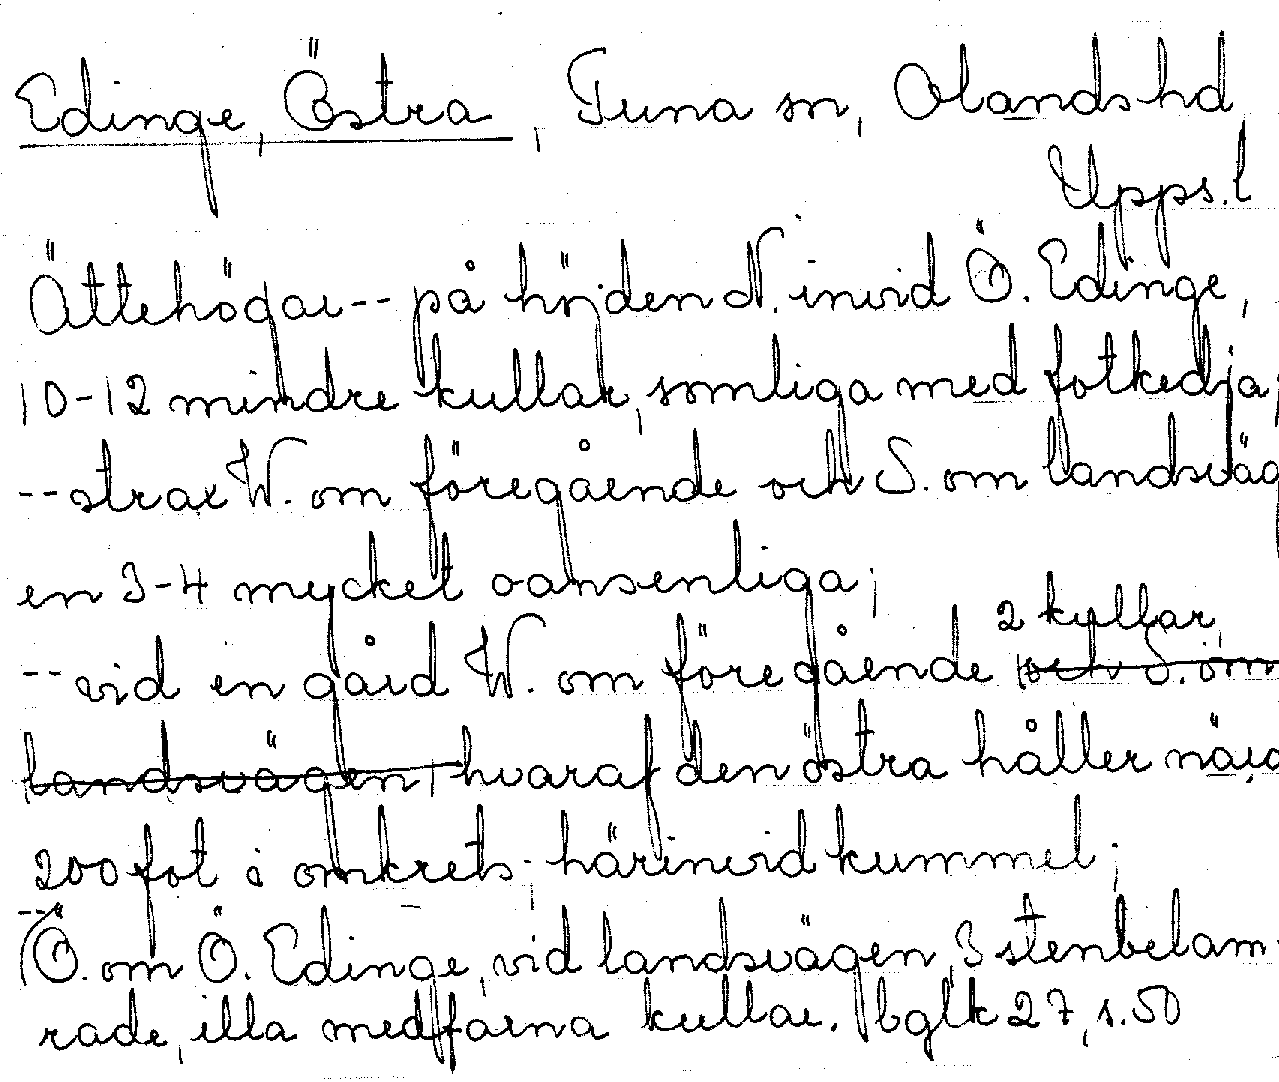 Edinge, Östra, Tuna sn, Olands hd,
Upps. l
Ättehögar -- på höjden N. invid Ö. Edinge,
10-12 mindre kullar, somliga med fotkedja;
-- strax W. om föregående och S. om landsväg
en 3-4 mycket oansenliga;
-- vid en gård W. om föregående 2 kullar, och S. om
landsvägen hvaraf den östra håller nära
200 fot i omkrets; härinvid kummel;
-- Ö. om Ö. Edinge, vid landsvägen, 3 stenbelam-
rade, illa medfarna kullar. bglk 27, s. 50